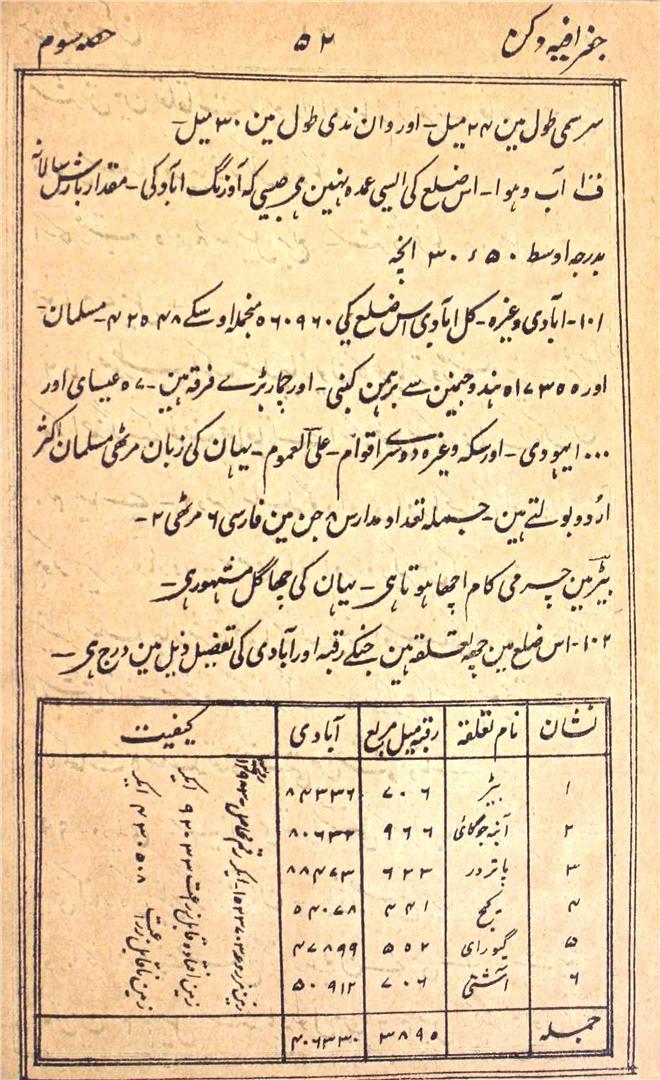 جغرافیہ دکن ۵۲ حصہ سوم
سرسمی طول مین ۲۴ میل۔ اور وان ندی طول مین ۳۰ میل۔
آب و ہوا۔ اس ضلع کی ایسی عمدہ نہین ہی جیسی کہ اورنگ آباد کی۔ مقدار بارش سالانہ
بدرجہ اوسط ۳۰،۵۰ انچہ
۱۰۱۔ ابادی وغیرہ۔ کل ابادی اس ضلع کی منجملہ اوسکے مسلمان
اور ہندو جنین سے برہمن کنبی۔ اور چمار بڑے فرقہ ہین۔ ۵۷ عیسای اور
یہودی۔ اور سکہ وغیرہ دوسرے اقوام۔ علی العموم۔ یہان کی زبان مرہٹی مسلمان اکثر
اُردو بولتے ہین۔ جسملہ تعداد مدارس ۸ جن مین فارسی ۶ مرہٹی ۲۔
بیڑ مین چرمی کام اچھا ہوتا ہی۔ یہان کی چھاگل مشہور ہی۔
۱۰۲۔ اس ضلع مین چھہ تعلقہ ہین جنکے رقبہ اور آبادی کی تفصیل ذیل مین درج ہی۔
نشان نام تعلقہ رقبہ میل مربع آبادی کیفیت
۱ بیڑ ۷۰۶ ۸۴۳۳۶
۲ آنبہ جوگائی ۹۶۶ ۸۰۶۳۲
۳ پاترور ۶۲۳ ۸۸۴۷۳
۴ کیج ۴۴۱ ۵۴۰۷۸
۵ گیورای ۵۵۲ ۴۷۸۹۹
۶ آشٹی ۷۰۶ ۵۰۹۱۲
جملہ ۳۸۹۵ ۴۰۶۳۳۰
زمین افتادہ قابل زراعت ۹۲۰۳۳ ایکر
زمین ناقابل زراعت ۴۳۰۵۰۸ ایکر